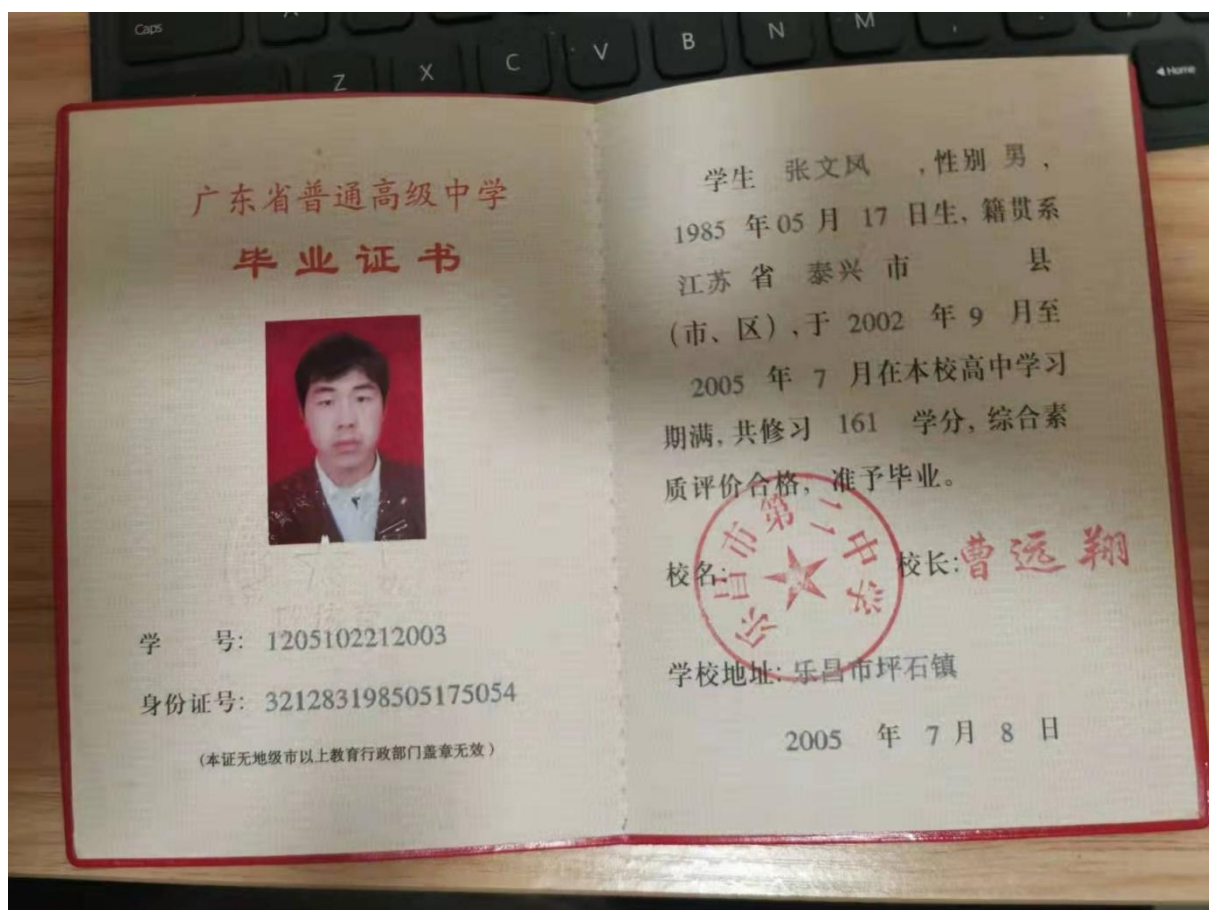 Caps
Z X C V B N M
Home
广东省普通高级中学
毕业证书
学 号: 1205102212003
身份证号: 321283198505175054
(本证无地级市以上教育行政部门盖章无效)
学生 张文风 ,性别 男 ,
1985 年 05 月 17 日生, 籍贯系
江苏 省 泰兴 市 县
(市、区) ,于 2002 年 9 月至
2005 年 7 月在本校高中学习
期满, 共修习 161 学分, 综合素
质评价合格, 准予毕业。
校名: 校长: 曹远翔
乐昌市第二中学
学校地址: 乐昌市坪石镇
2005 年 7 月 8 日